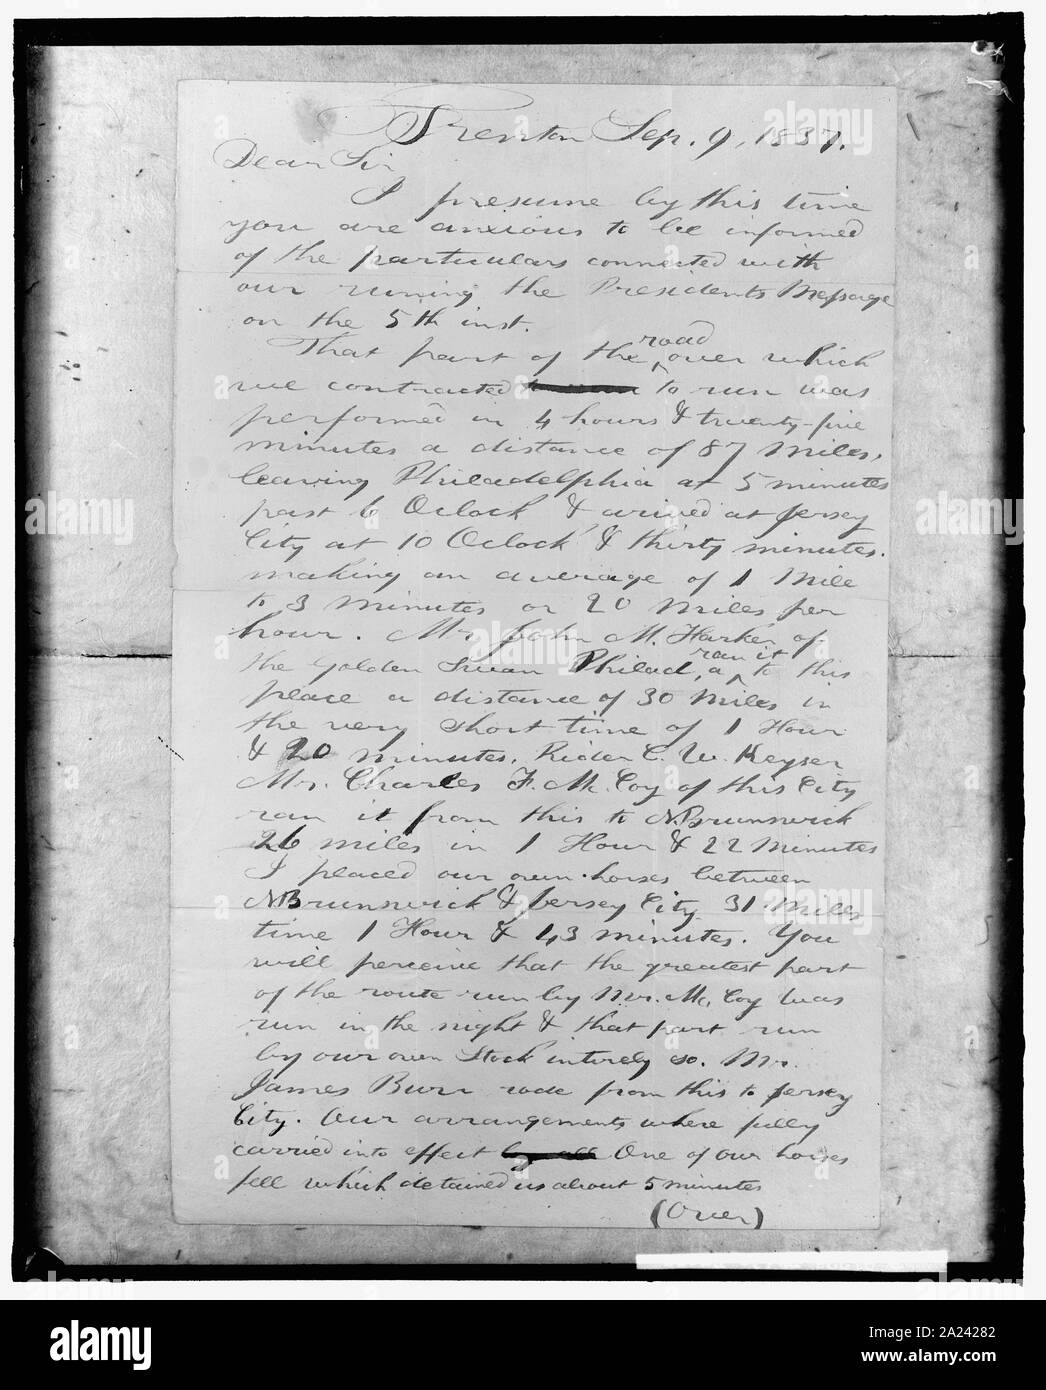 Trenton Sep. 9, 1837.
Dear Sir
I presume by this time
you are anxious to be informed
of the particulars connected with
our runing the Presidents Message
on the 5th inst.
That part of the road over which
we contracted to run was
performed in 4 hours & twenty-five
minutes a distance of 87 Miles,
leaving Philadelphia at 5 minutes
past 6 Oclock & arrived at Jersey
City at 10 Oclock & thirty minutes.
making an average of 1 Mile
to 3 Minutes or 20 Miles per
hour. Mr John M. Harker of
the Golden Swan Philad, a ran it to this
place a distance of 30 Miles in
the very short time of 1 Hour
& 20 minutes, Rider C. W. Keyser
Mr. Charles F. Mc. Coy of this City
ran it from this to N.Brunswick
26 miles in 1 Hour & 22 Minutes
I placed our own horses between
N.Brunswick & Jersey City 31 Miles
time 1 Hour & 43 minutes. You
will perceive that the greatest part
of the route run by Mr. Mc, Coy was
run in the night & that part run
by our own Stock intirely so. Mr.
James Burr rode from this to Jersey
City. Our arrangements where fully
carried into effect by all One of our horses
fell which detained us about 5 minutes
(Over)
alamy
Image ID: 2A24282
www.alamy.com